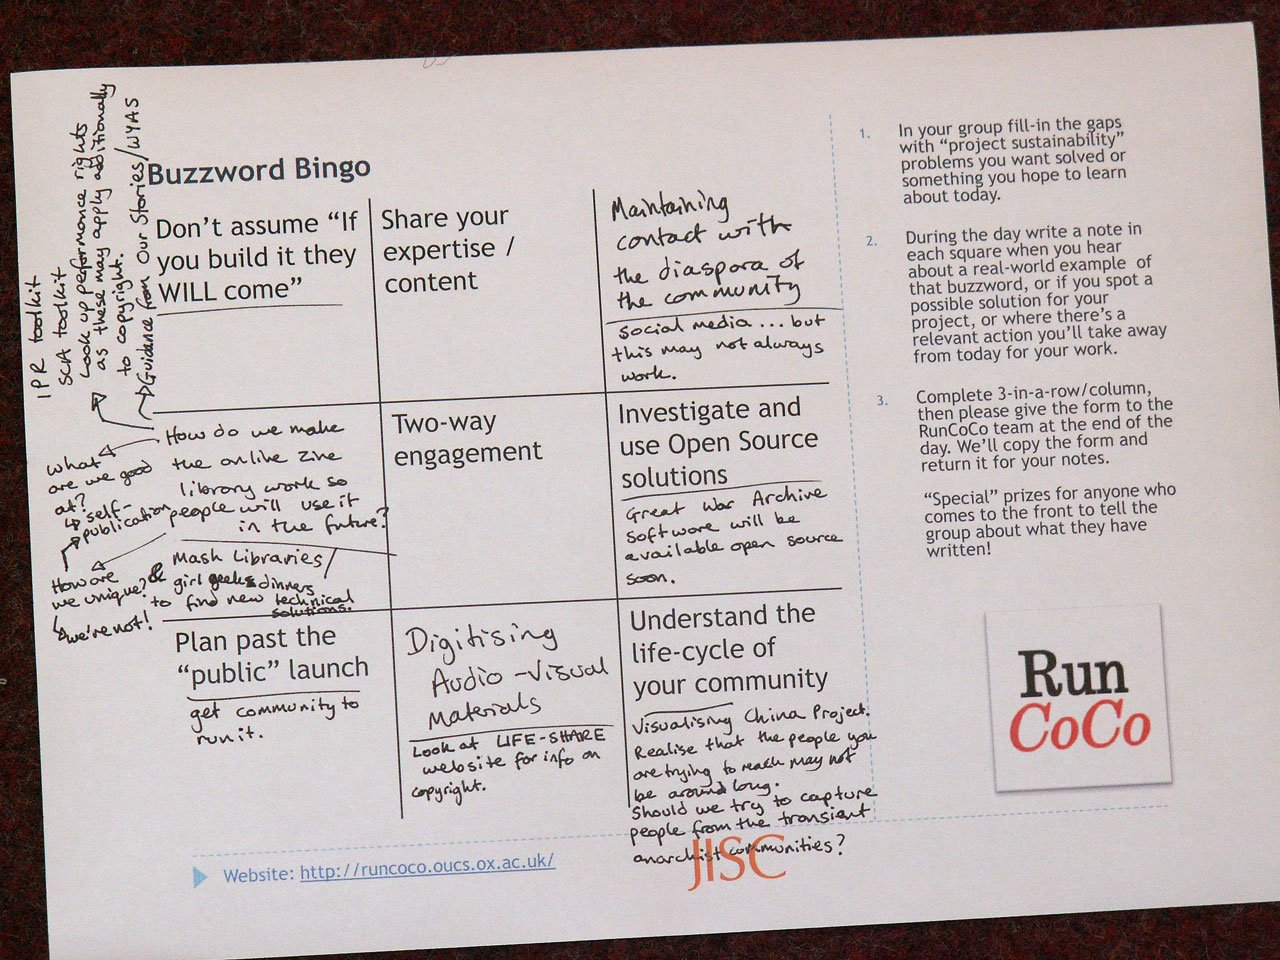 Buzzword Bingo
IPR toolkit
SCA toolkit
Look up performance rights
as these may apply additionally
to copyright.
Guidance from Our Stories/WYAS
Don't assume “If
you build it they
WILL come”
Share your
expertise /
content
Maintaining
contact with
the diaspora of
the community
social media ... but
this may not always
work.
How do we make
the online zine
library work so
people will use it
in the future?
Mash Libraries/
& girl geeks dinners
to find new technical
solutions.
What
are we good
at?
↳ self-
publication
How are
we unique?
↳ we're not!
Two-way
engagement
Investigate and
use Open Source
solutions
Great War Archive
Software will be
available open source
soon.
Plan past the
“public” launch
get community to
run it.
Digitising
Audio-Visual
Materials
Look at LIFE-SHARE
website for info on
copyright.
Understand the
life-cycle of
your community
Visualising China Project.
Realise that the people you
are trying to reach may not
be around long.
Should we try to capture
people from the transient
anarchist communities?
1. In your group fill-in the gaps
with “project sustainability”
problems you want solved or
something you hope to learn
about today.
2. During the day write a note in
each square when you hear
about a real-world example of
that buzzword, or if you spot a
possible solution for your
project, or where there's a
relevant action you'll take away
from today for your work.
3. Complete 3-in-a-row/column,
then please give the form to the
RunCoCo team at the end of the
day. We'll copy the form and
return it for your notes.
“Special” prizes for anyone who
comes to the front to tell the
group about what they have
written!
Run
CoCo
Website: http://runcoco.oucs.ox.ac.uk/
JISC